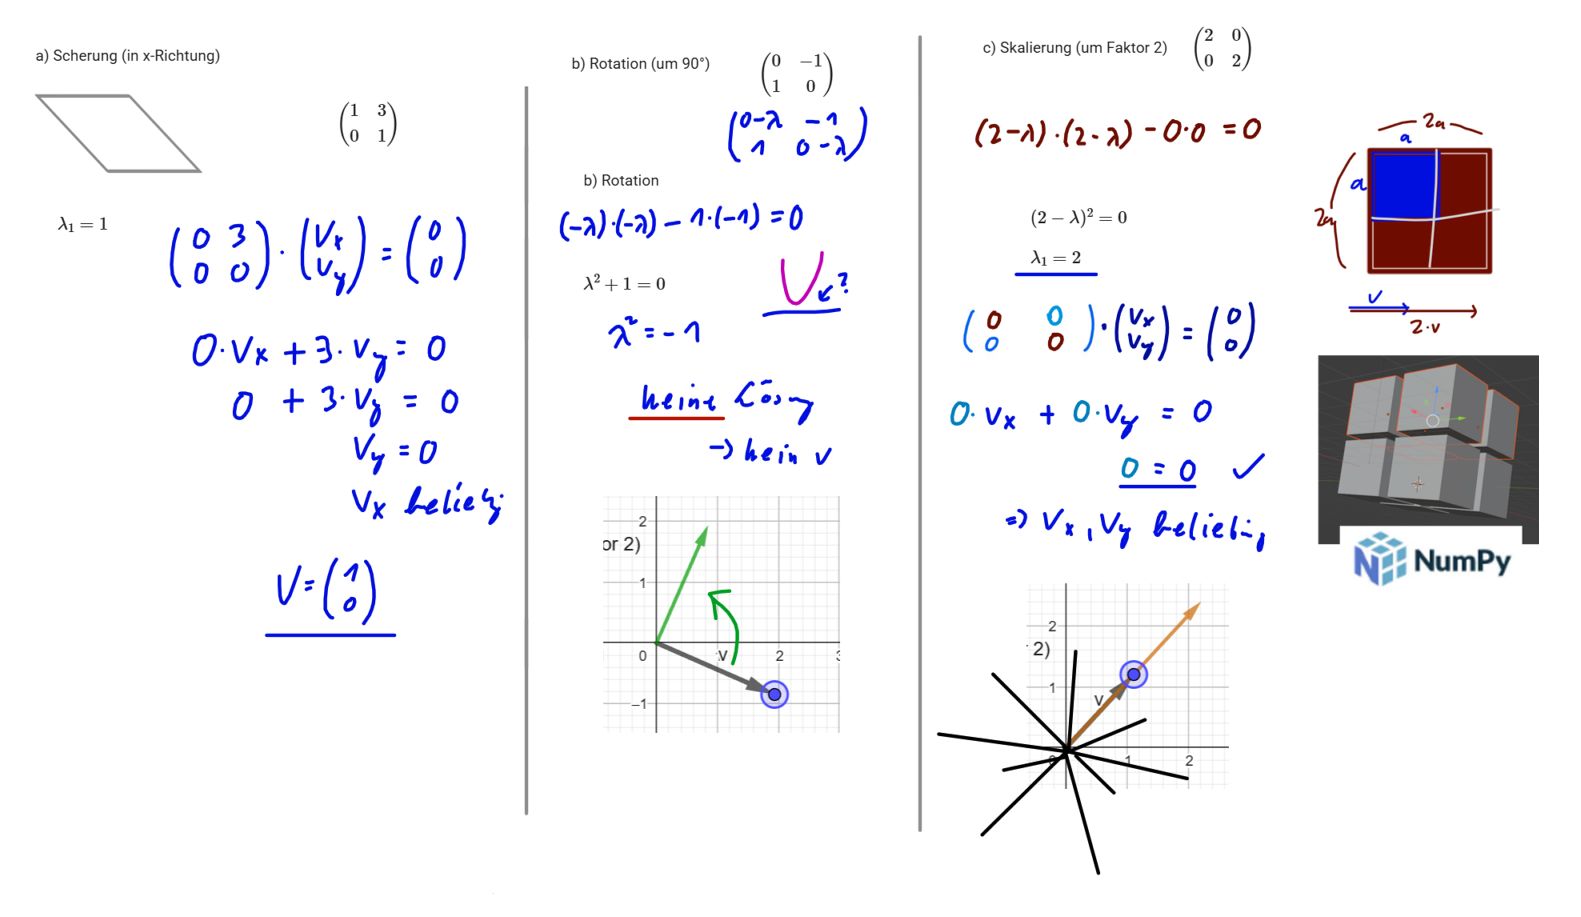 a) Scherung (in x-Richtung)
(1 3
0 1)
λ₁ = 1
(0 3
0 0) · (Vx
Vy) = (0
0)
0·Vx + 3·Vy = 0
0 + 3·Vy = 0
Vy = 0
Vx beliebig
V = (1
0)
b) Rotation (um 90°)
(0 −1
1 0)
(0-λ -1
1 0-λ)
b) Rotation
(-λ)·(-λ) - 1·(-1) = 0
λ² + 1 = 0
?
λ² = -1
keine Lösung
→ kein v
2
or 2)
1
0 v 2 3
−1
c) Skalierung (um Faktor 2)
(2 0
0 2)
(2-λ)·(2-λ) - 0·0 = 0
(2 − λ)² = 0
λ₁ = 2
(0 0
0 0) · (Vx
Vy) = (0
0)
0·Vx + 0·Vy = 0
0 = 0 ✓
⇒ Vx, Vy beliebig
2
2)
1
v
0 1 2
2a
a
a
2a
v
2·v
NumPy